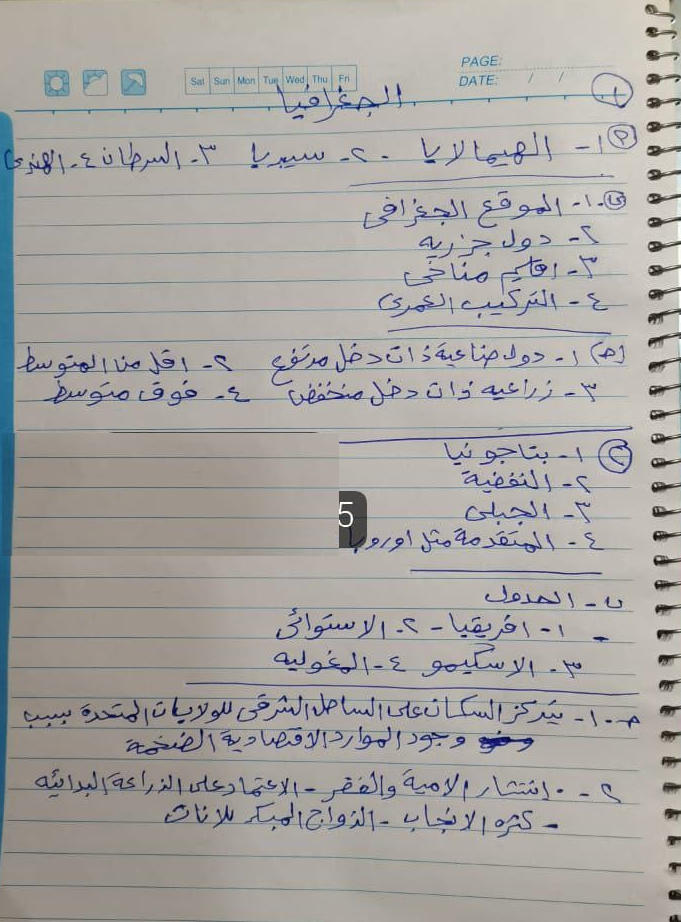 PAGE:
DATE: / /
Sat Sun Mon Tue Wed Thu Fri
١
الجغرافيا
(م) ١- الهيمالايا - ٢- سيبريا ٣- السرطان ٤- الهندى
(ب) ١- الموقع الجغرافى
٢- دول جزريه
٣- اقليم مناخى
٤- التركيب العمرى
(حـ) ١- دول صناعية ذات دخل مرتفع ٢- اقل من المتوسط
٣- زراعيه ذات دخل منخفض ٤- فوق متوسط
(٢) ١- بتاجونيا
٢- النفضية
٣- الجبلى
5
٤- المتقدمة مثل اوروبا
ب- الجدول
١- افريقيا - ٢- الاستوائى
٣- الاسكيمو ٤- المغوليه
حـ - ١- يتركز السكان على الساحل الشرقى للولايات المتحدة بسبب
وجود الموارد الاقتصادية الضخمة
٢- - انتشار الامية والفقر - الاعتماد على الزراعة البدائيه
- كثره الانجاب - الزواج المبكر للاناث